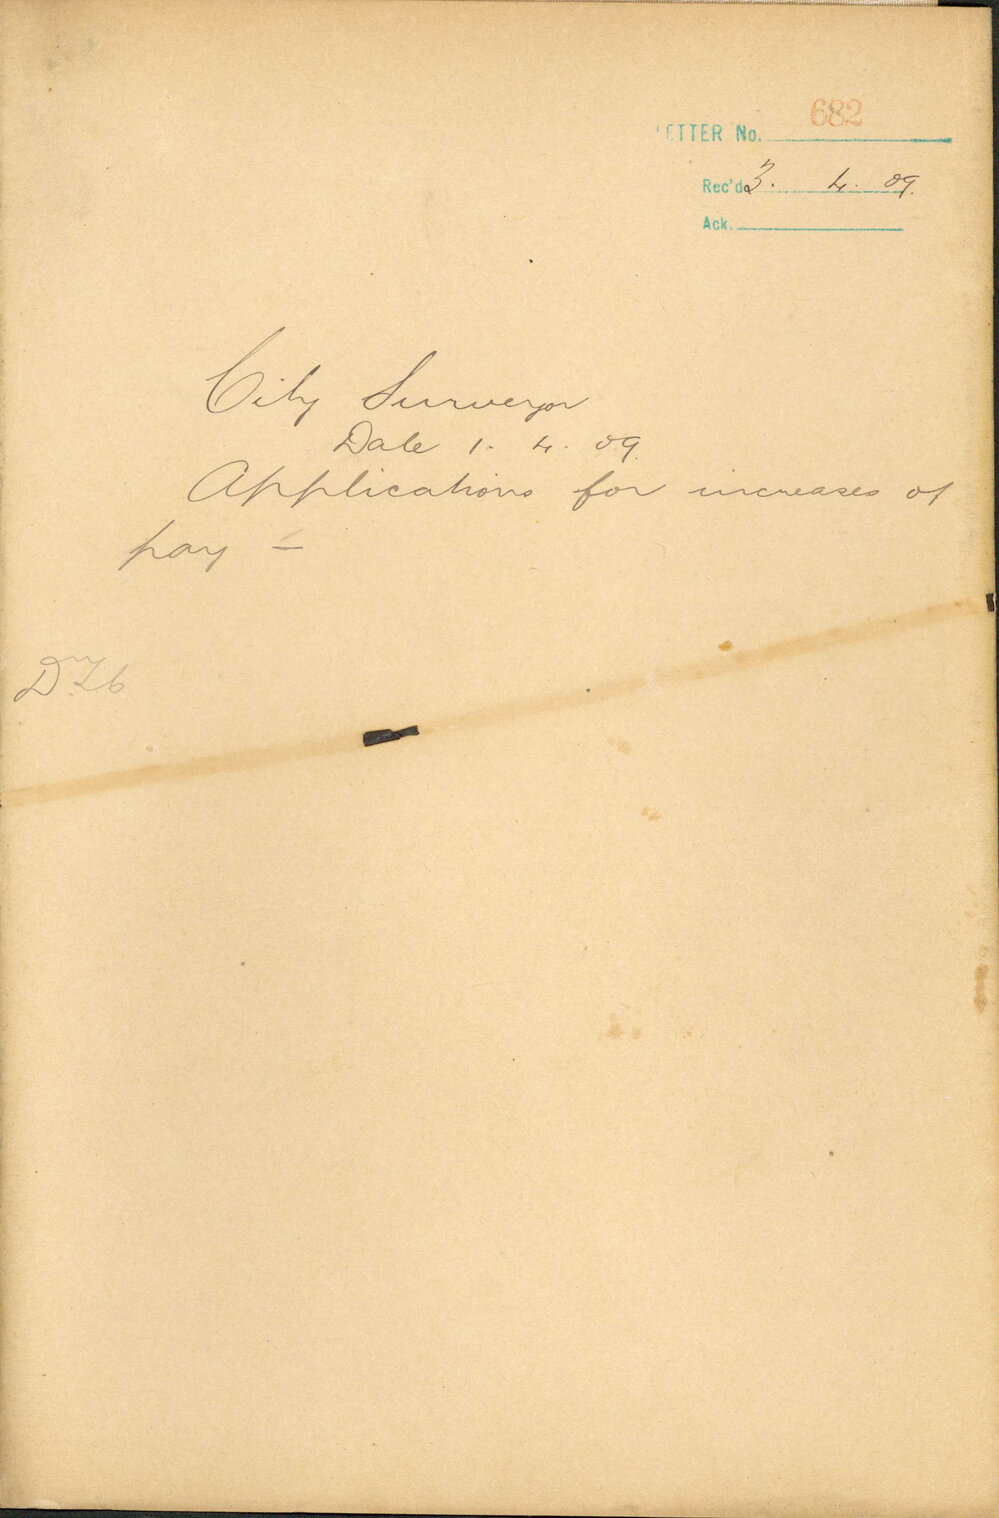 LETTER No. 682
Rec'd 3. 4. 09.
Ack.
City Surveyor
Date 1. 4. 09.
Applications for increases of
pay —